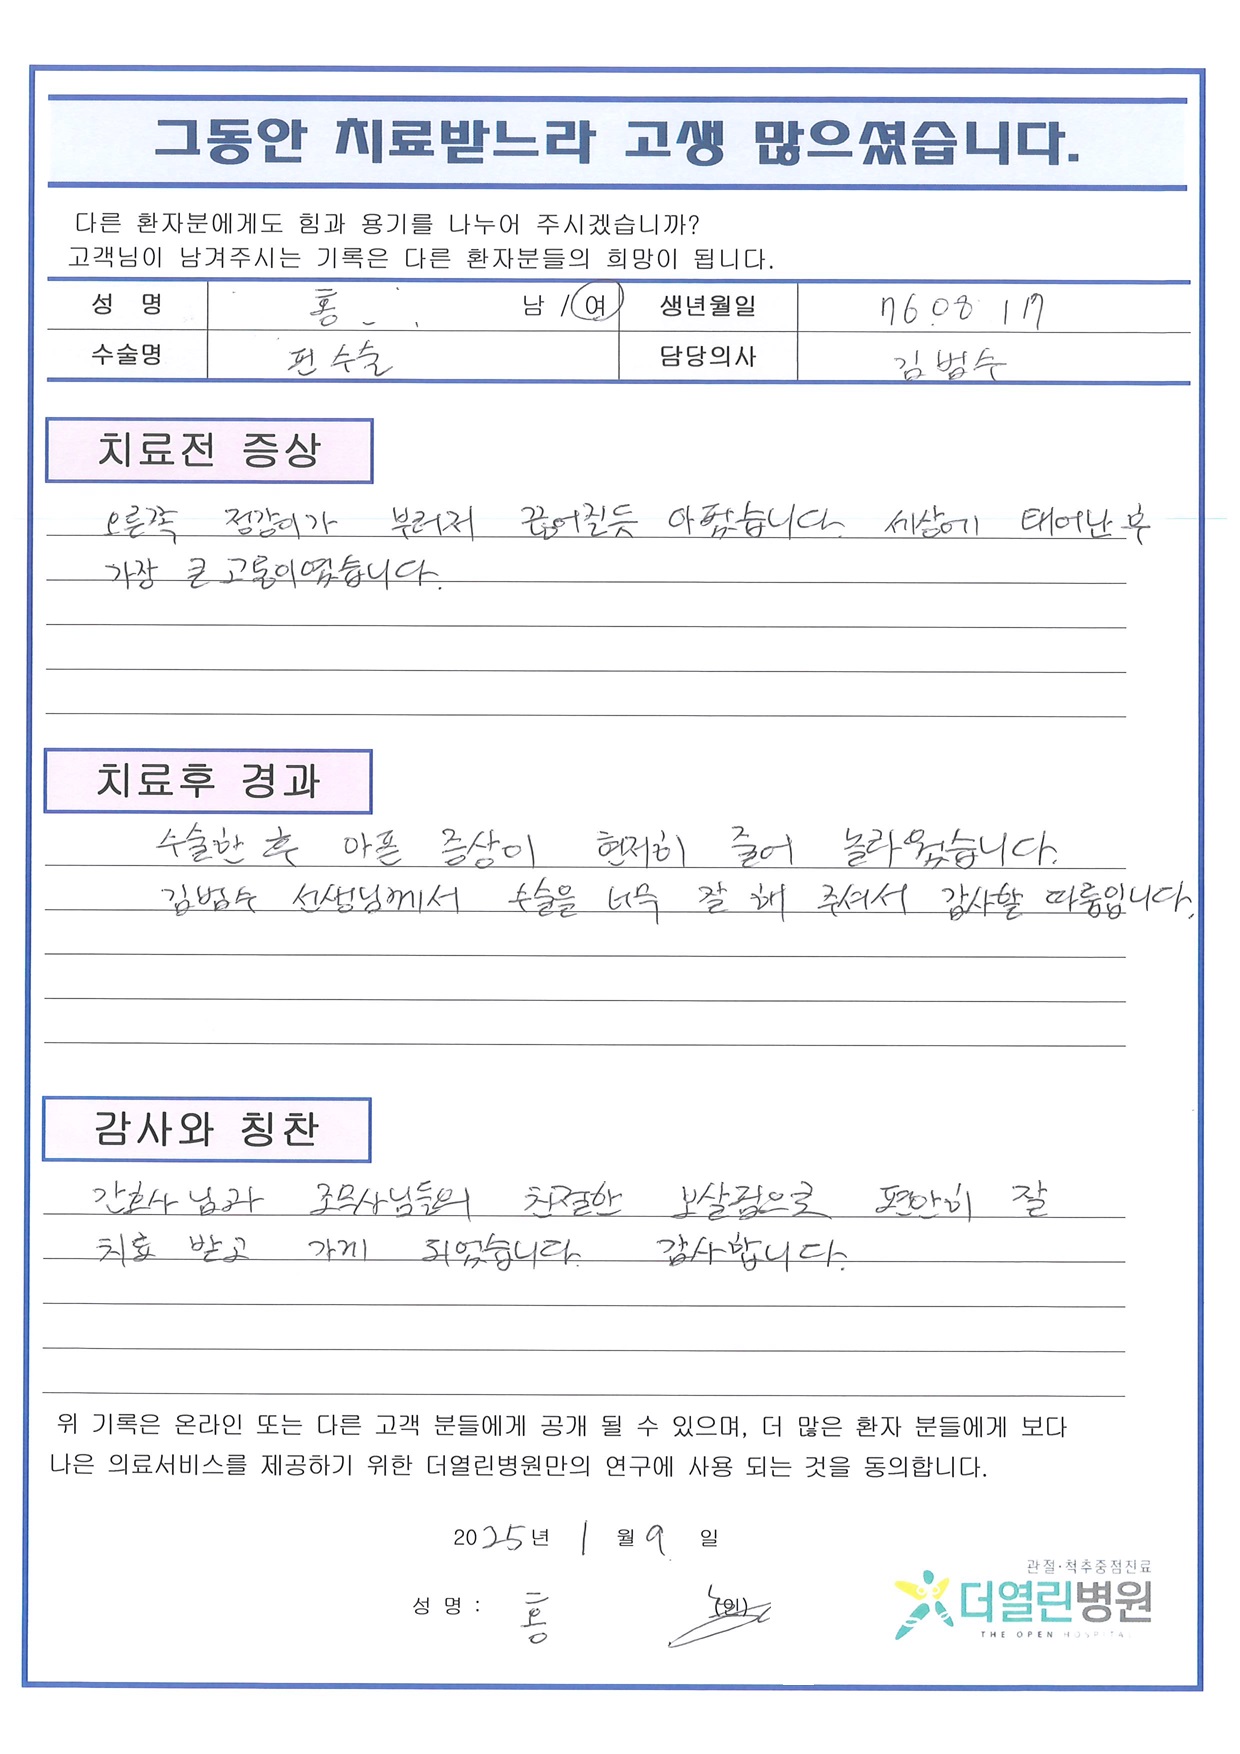 그동안 치료받느라 고생 많으셨습니다.
다른 환자분에게도 힘과 용기를 나누어 주시겠습니까?
고객님이 남겨주시는 기록은 다른 환자분들의 희망이 됩니다.
성 명 홍 남 / 여 생년월일 76.08 17
수술명 핀 수술 담당의사 김범수
치료전 증상
오른쪽 정강이가 부러져 끊어질듯 아팠습니다. 세상에 태어난 후
가장 큰 고통이었습니다.
치료후 경과
수술한 후 아픈 증상이 현저히 줄어 놀라웠습니다.
김범수 선생님께서 수술을 너무 잘 해 주셔서 감사할 따름입니다.
감사와 칭찬
간호사님과 조무사님들의 친절한 보살핌으로 편안히 잘
치료 받고 가게 되었습니다. 감사합니다.
위 기록은 온라인 또는 다른 고객 분들에게 공개 될 수 있으며, 더 많은 환자 분들에게 보다
나은 의료서비스를 제공하기 위한 더열린병원만의 연구에 사용 되는 것을 동의합니다.
2025년 1 월 9 일
성 명 : 홍 (인)
관절·척추중점진료
더열린병원
THE OPEN HOSPITAL